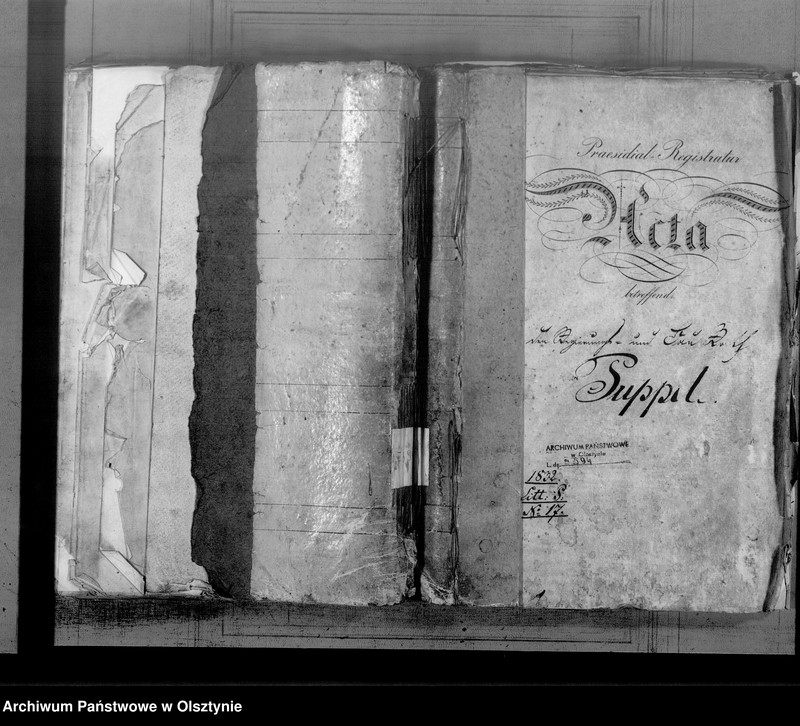 Praesidial-Registratur
Acta
betreffend
den Regierungs- und Bau Rath
Puppel.
ARCHIWUM PAŃSTWOWE
w Olsztynie
L.dz.
1832.
Litt: P.
No: 17.
Archiwum Państwowe w Olsztynie